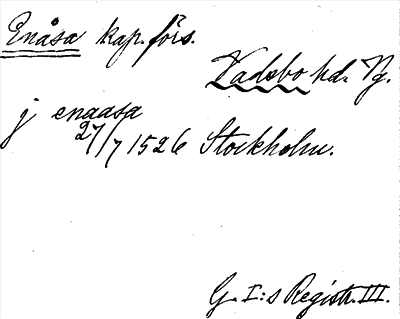 Enåsa kap. förs.
Vadsbo hd. Vg.
j enaasa
27/7 1526 Stockholm.
G. I:s Registr. III.